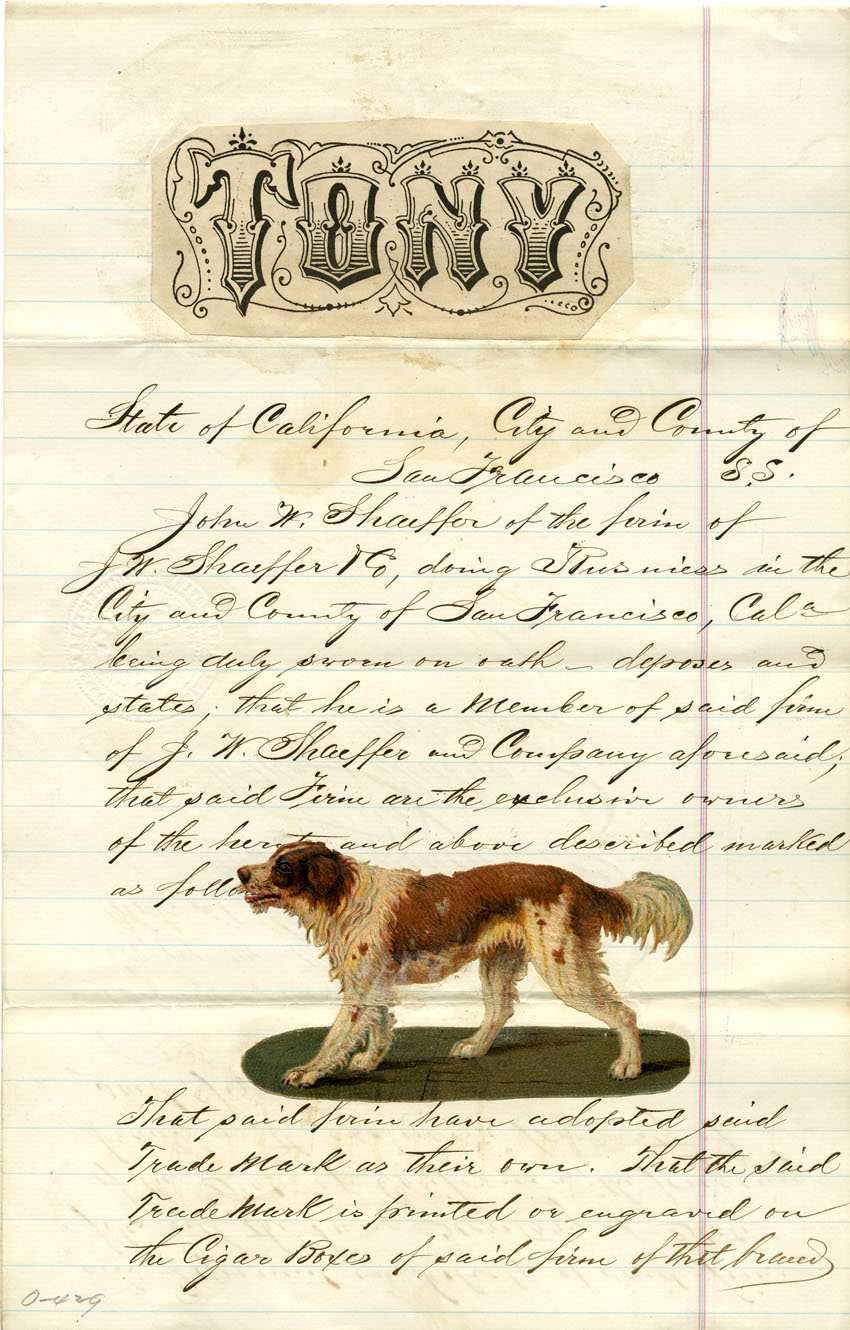 TONY
State of California, City and County of
San Francisco S.S.
John W. Shaeffer of the firm of
J W. Shaeffer & Co, doing Business in the
City and County of San Francisco, Cala
being duly sworn on oath – deposes and
states; that he is a Member of said firm
of J. W. Shaeffer and Company aforesaid;
that said Firm are the exclusive owners
of the and above described marked
as
That said firm have adopted said
Trade Mark as their own. That the said
Trade Mark is printed or engraved on
the Cigar Boxes of said firm of that brand
0-429